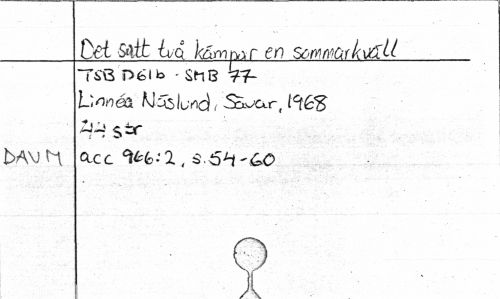 Det satt två kämpar en sommarkväll
TSB D61b · SMB 77
Linnéa Näslund, Sävar, 1968
44 str
DAUM acc 966:2, s. 54-60